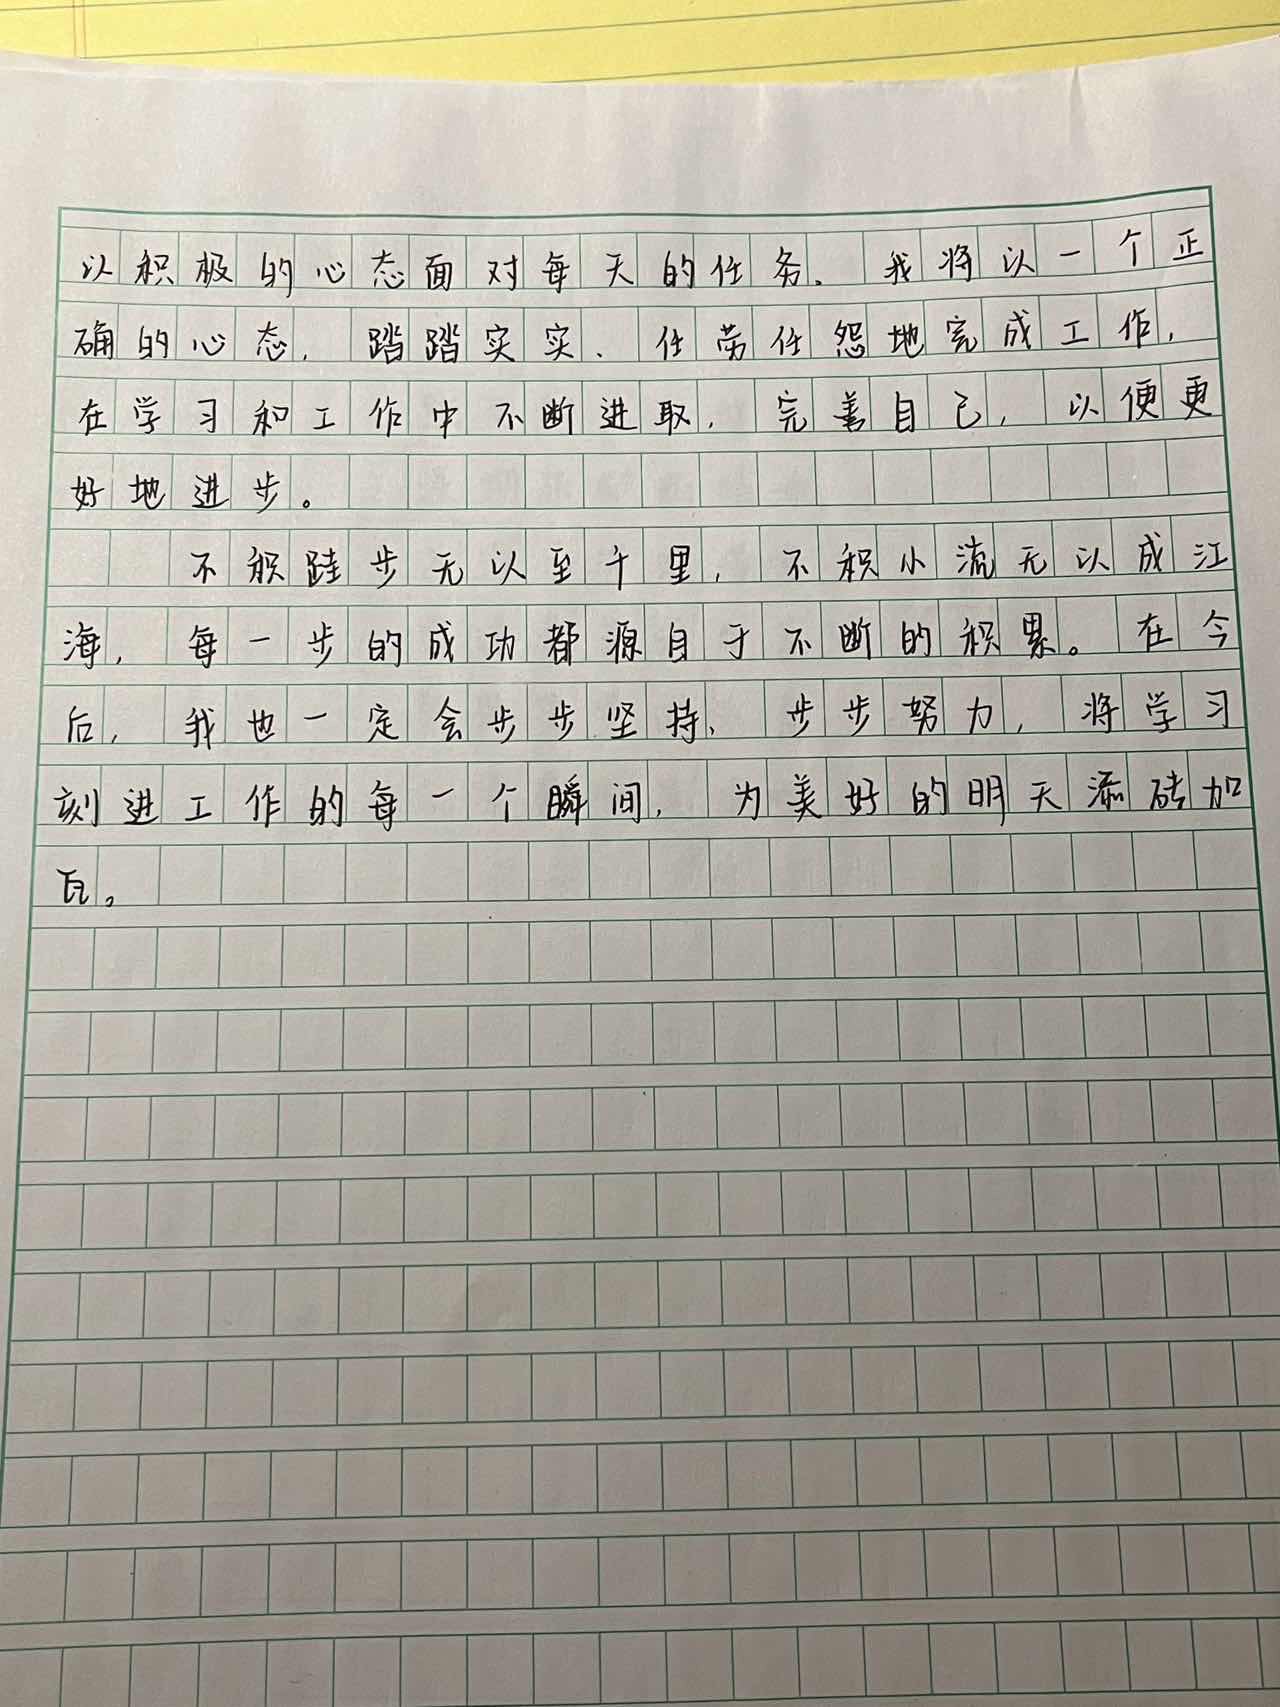 以积极的心态面对每天的任务、我将以一个正
确的心态,踏踏实实、任劳任怨地完成工作,
在学习和工作中不断进取,完善自己,以便更
好地进步。
不积跬步无以至千里,不积小流无以成江
海,每一步的成功都源自于不断的积累。在今
后,我也一定会步步坚持、步步努力,将学习
刻进工作的每一个瞬间,为美好的明天添砖加
瓦。